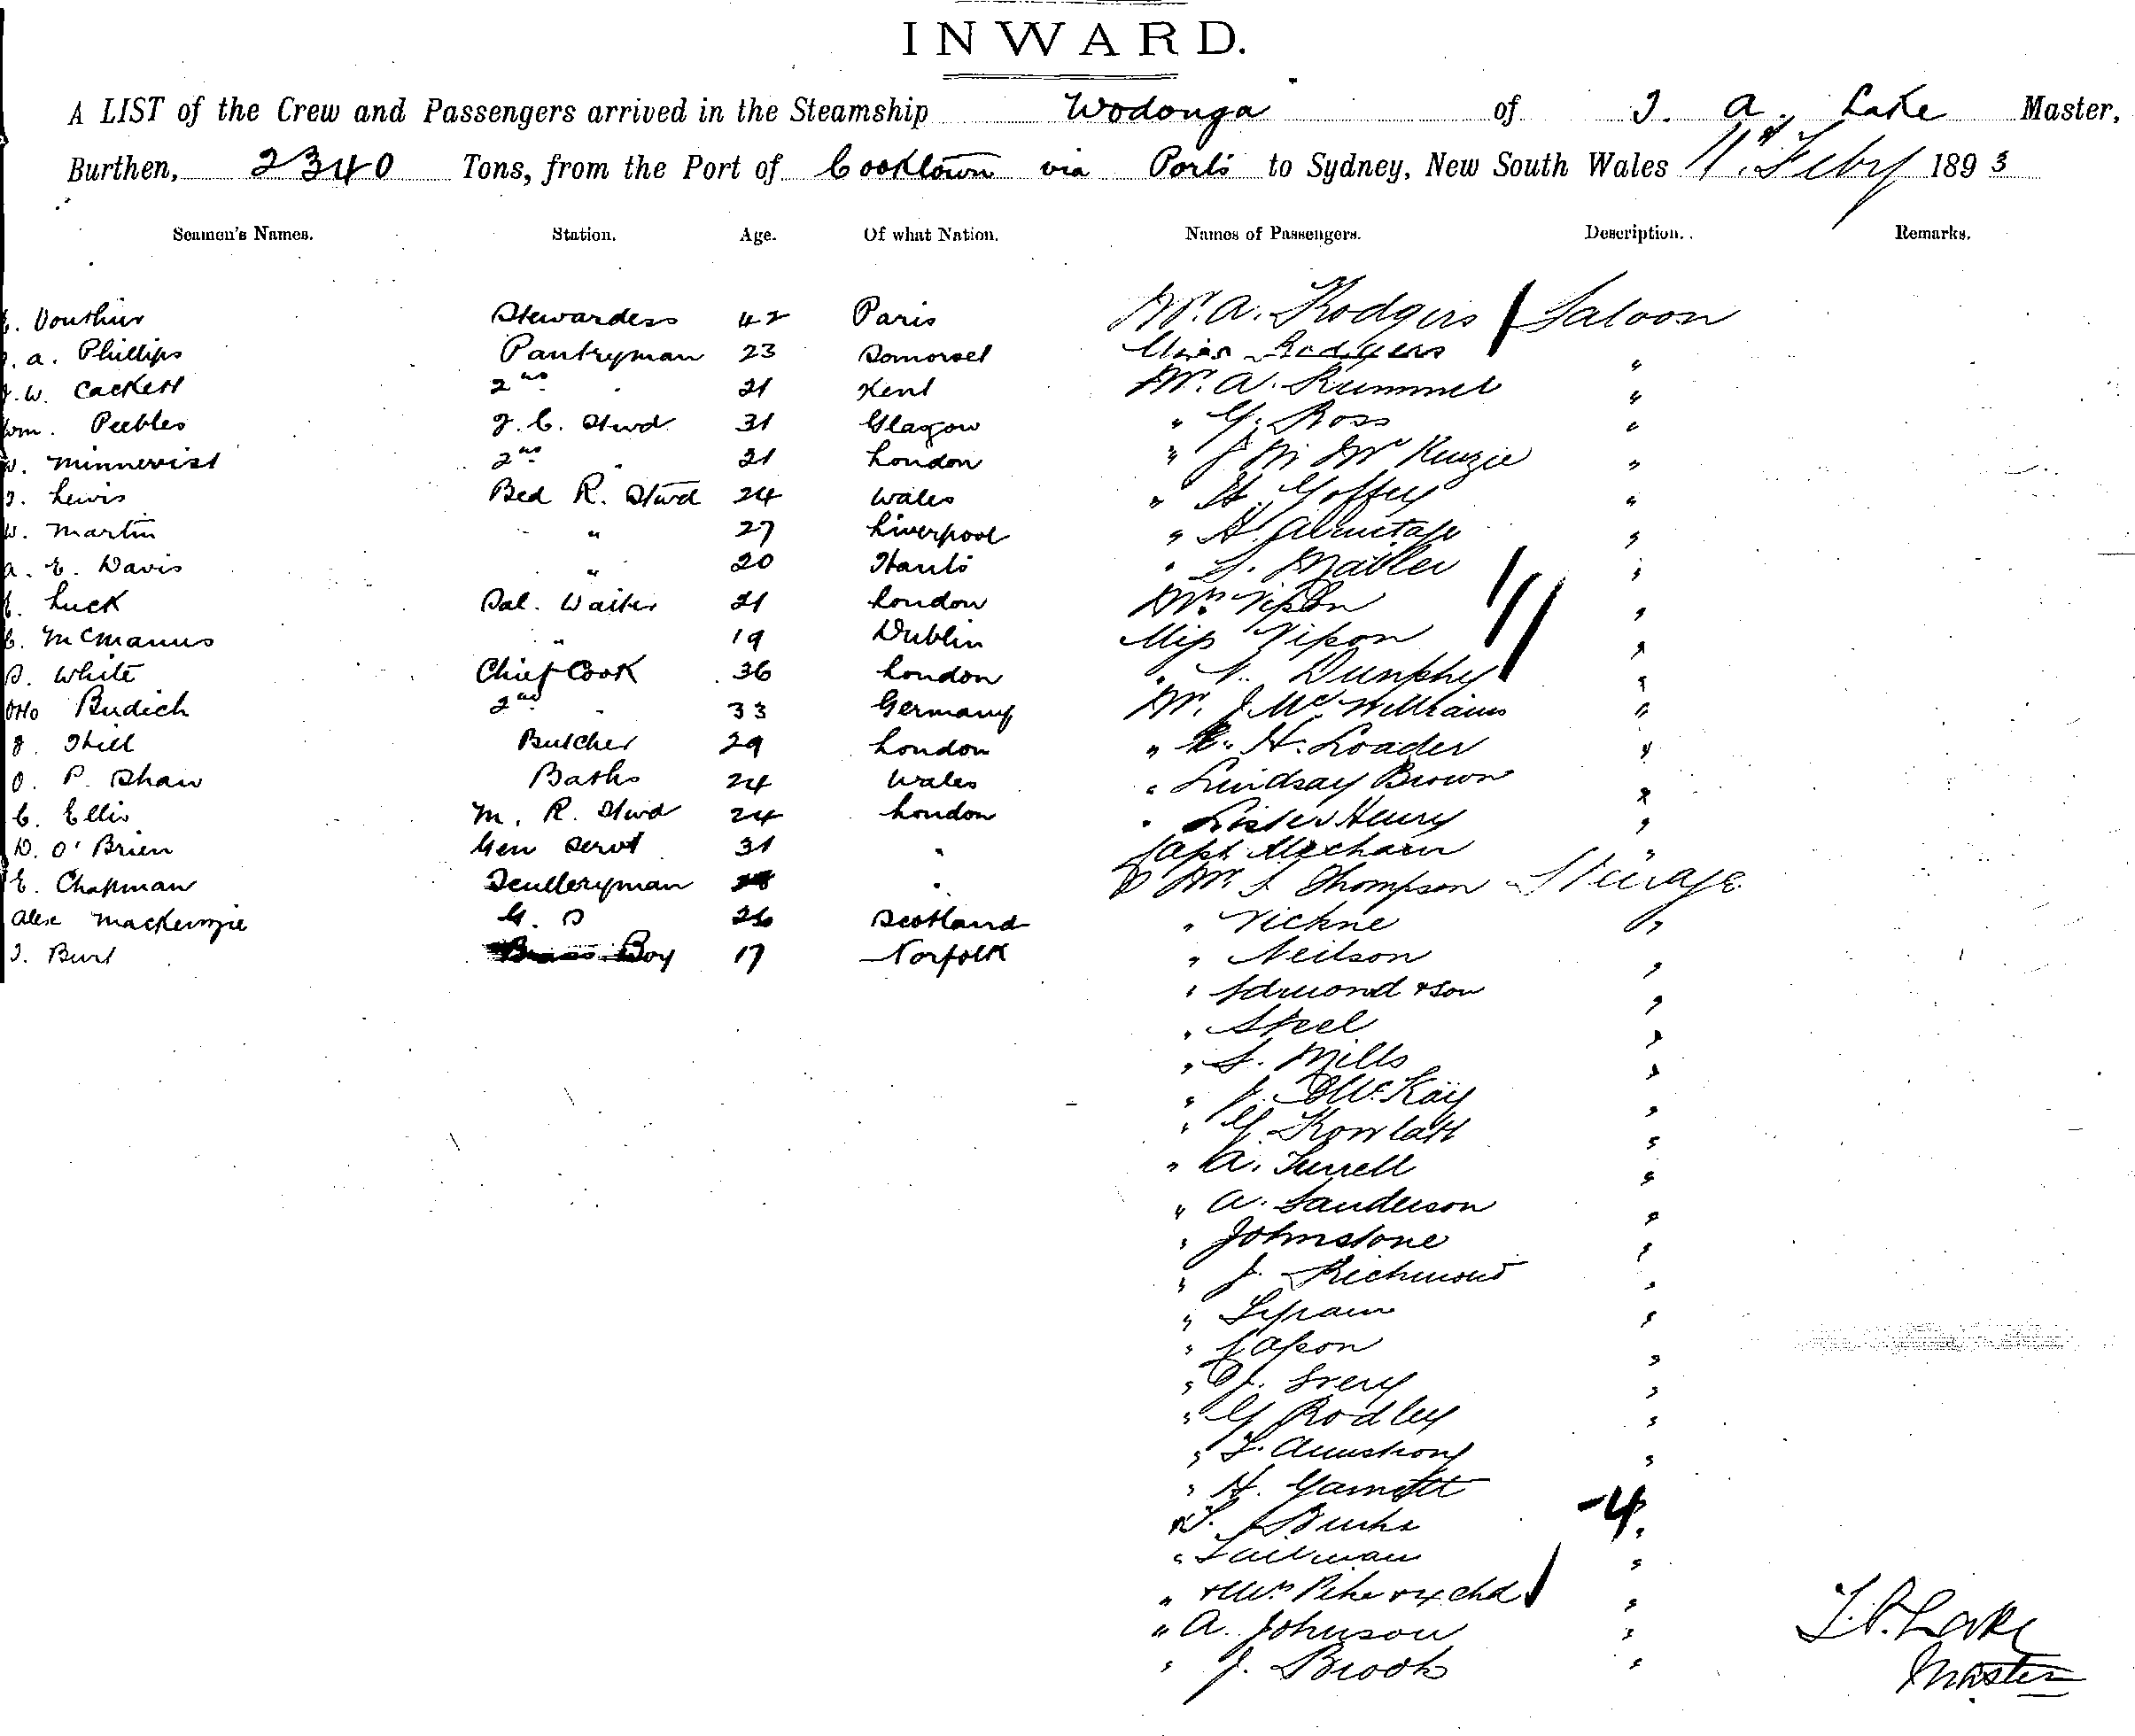 INWARD.
A LIST of the Crew and Passengers arrived in the Steamship Wodonga of T. A. Lake Master,
Burthen, 2340 Tons, from the Port of Cooktown via Ports to Sydney, New South Wales 11th Feby 1893
Seamen's Names. Station. Age. Of what Nation. Names of Passengers. Description. Remarks.
Stewardess 42 Paris Mr. A. Rodgers Saloon
A. Phillips Pantryman 23 Somerset Miss Rodgers "
W. Cackett 2nd " 21 Kent Mr. A. Rummel "
Wm. Peebles F. C. Stwd 31 Glasgow " G. Ross "
W. Minnevist 2nd " 21 London " J M McKenzie "
T. Lewis Bed R. Stwd 24 Wales " H. Goffey "
W. Martin " 27 Liverpool " A. Armitage "
A. E. Davis " 20 Hants " S. "
Luck Sal. Waiter 21 London Mrs Vipon "
C. McManus " 19 Dublin Miss Vipon "
S. White Chief Cook 36 London " Dunphy "
Otto Budich 2nd " 33 Germany Mr. J. McWilliams "
J. Hill Butcher 29 London " H. Loader "
O. P. Shaw Baths 24 Wales " Lindsay Brown "
C. Ellis M. R. Stwd 24 London " Lister Henry "
D. O'Brien Gen Servt 31 " Capt. Mecham "
E. Chapman Sculleryman " Mr. S. Thompson Steerage
Alex Mackenzie G. S 26 Scotland " Vickne "
T. Burt Boy 17 Norfolk " Neilson "
" Edmond & Son "
" Steel "
" S. Mills "
" J. McKay "
" G. Rowlatt "
" A. Turrell "
" A. Sanderson "
" Johnstone "
" J. Richmond "
" "
" Capon "
" J. "
" G Rodley "
" T. Armstrong "
" H. Garnett "
" T. Burke -4 "
" "
" & Mrs Pike & 4 chd "
" A. Johnson " T. A. Lake
" J. Brook " Master